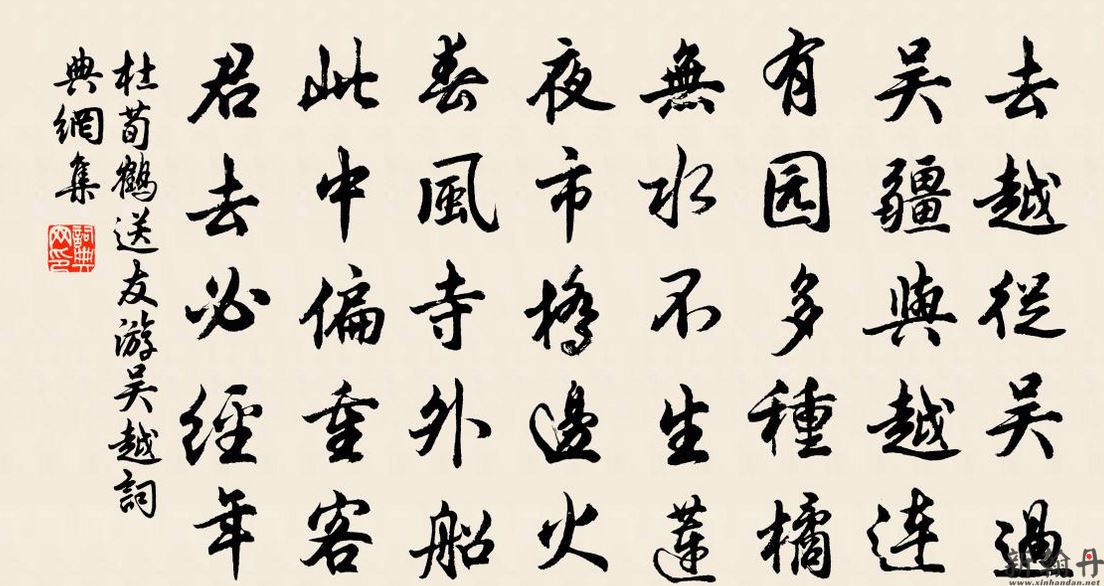 去越從吴過
吴疆與越連
有园多種橘
無水不生蓮
夜市橋邊火
春風寺外船
此中偏重客
君去必經年
杜荀鶴送友游吴越詞
典網集
詞典网印
新翰丹
www.xinhandan.net